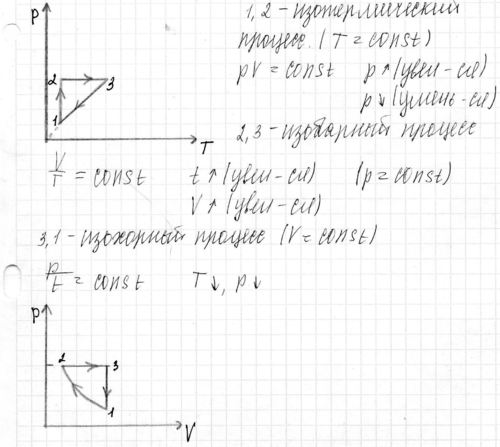 P
2
3
1
T
1,2 - изотермический
процесс. (T = const)
pV = const p↑(увел-ся)
p↓(умень-ся)
2,3 - изобарный процесс
V/T = const t↑(увел-ся) (p = const)
V↑(увел-ся)
3,1 - изохорный процесс (V = const)
p/t = const T↓, p↓
P
2
3
1
V